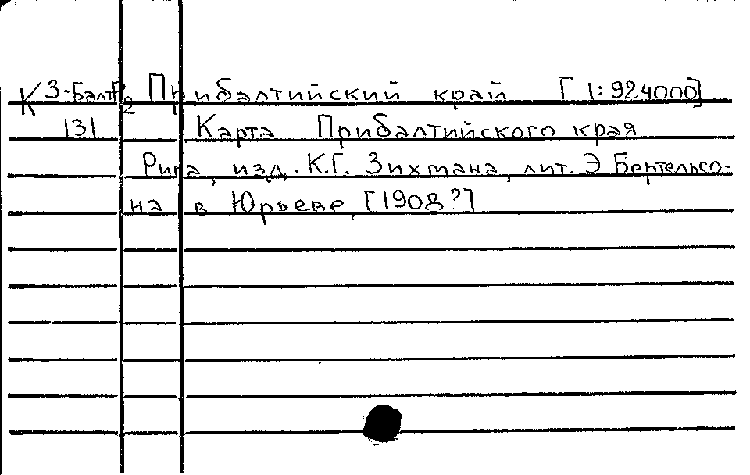 К З-Балт/2 Прибалтийский край [1:924000]
131 Карта Прибалтийского края
Рига, изд. К.Г. Зихмана, лит. Э Бертельсо-
на в Юрьеве, [1908?]